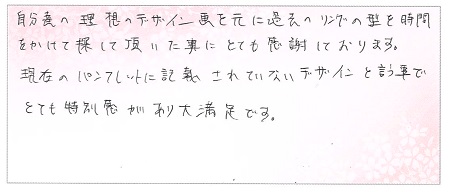 自分達の理想のデザイン画を元に過去のリングの型を時間
をかけて探して頂いた事にとても感謝しております。
現在のパンフレットに記載されていないデザインと言う事で
とても特別感があり大満足です。